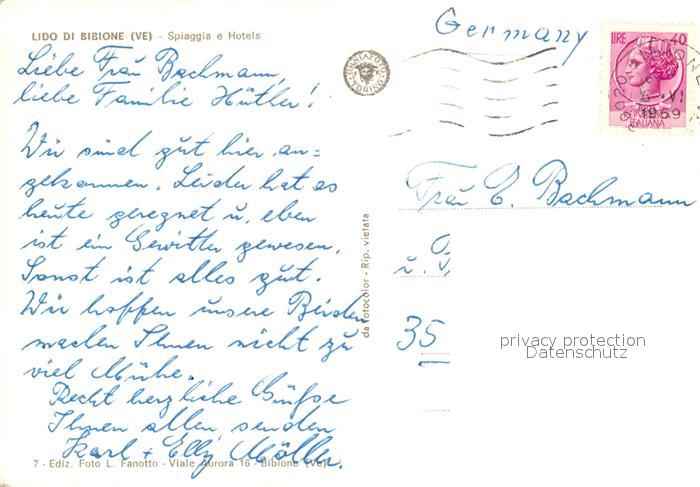 LIDO DI BIBIONE (VE) - Spiaggia e Hotels
Liebe Frau Bachmann,
liebe Familie Hütler!
Wir sind gut hier an=
gekommen. Leider hat es
heute geregnet u. eben
ist ein Gewitter gewesen.
Sonst ist alles gut.
Wir hoffen unsere Beiden
machen Ihnen nicht zu
viel Mühe.
Recht herzliche Grüße
Ihnen allen senden
Karl + Elly Möller.
7 - Ediz. Foto L. Fanotto - Viale Aurora 16 - Bibione (Ve)
da fotocolor - Rip. vietata
Germany
LIRE 40
VI
1969
ITALIANA
Frau E. Bachmann
u. F
35
privacy protection
Datenschutz